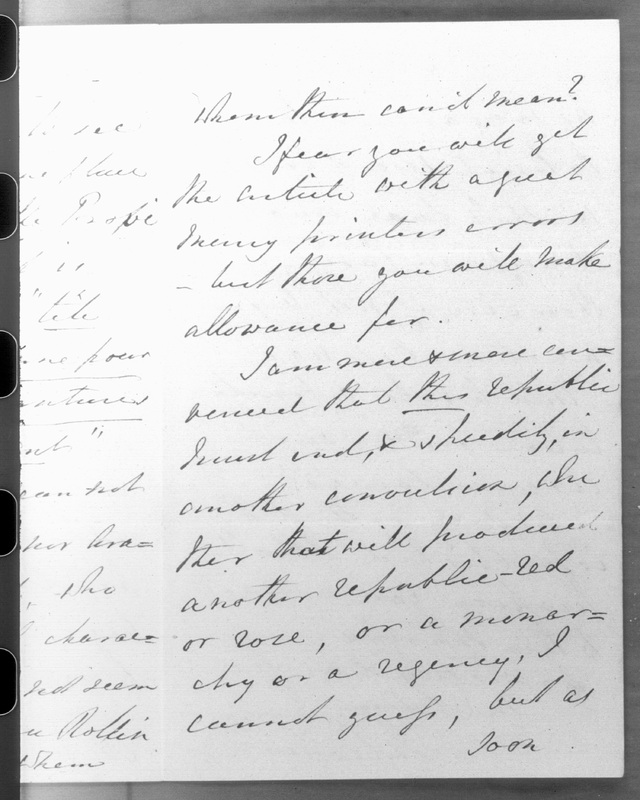 to see
place
is
tile
pour
"
can not
who
charac=
not seem
Rollin
them
Whom then could mean?
I fear you will get
the article with a great
many printers errors
- but those you will make
allowance for.
I am more & more con=
vinced that this republic
must end, & speedily, in
another convulsion, Whe
ther that will produced
another republic - red
or rose, or a monar=
chy or a regency, I
cannot guess, but as
soon